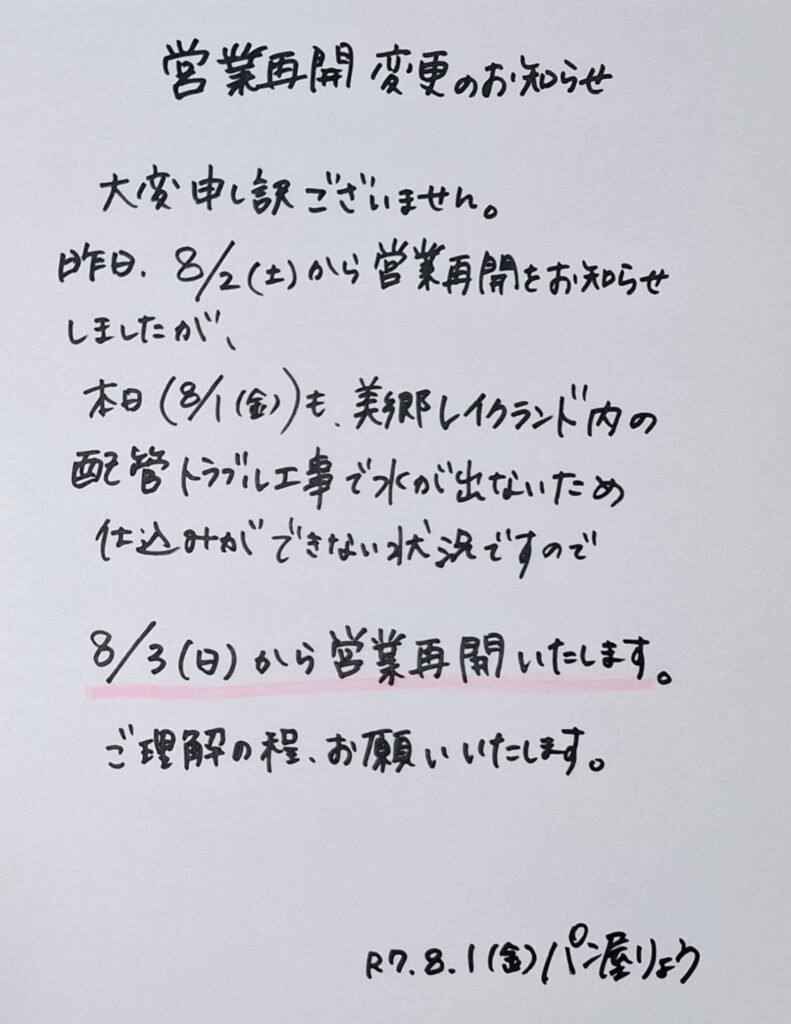 営業再開 変更のお知らせ
大変申し訳ございません。
昨日、8/2(土)から営業再開をお知らせ
しましたが、
本日(8/1(金))も、美郷レイクランド内の
配管トラブル工事で水が出ないため
仕込みができない状況ですので
8/3(日)から営業再開いたします。
ご理解の程、お願いいたします。
R7.8.1(金)パン屋りょう